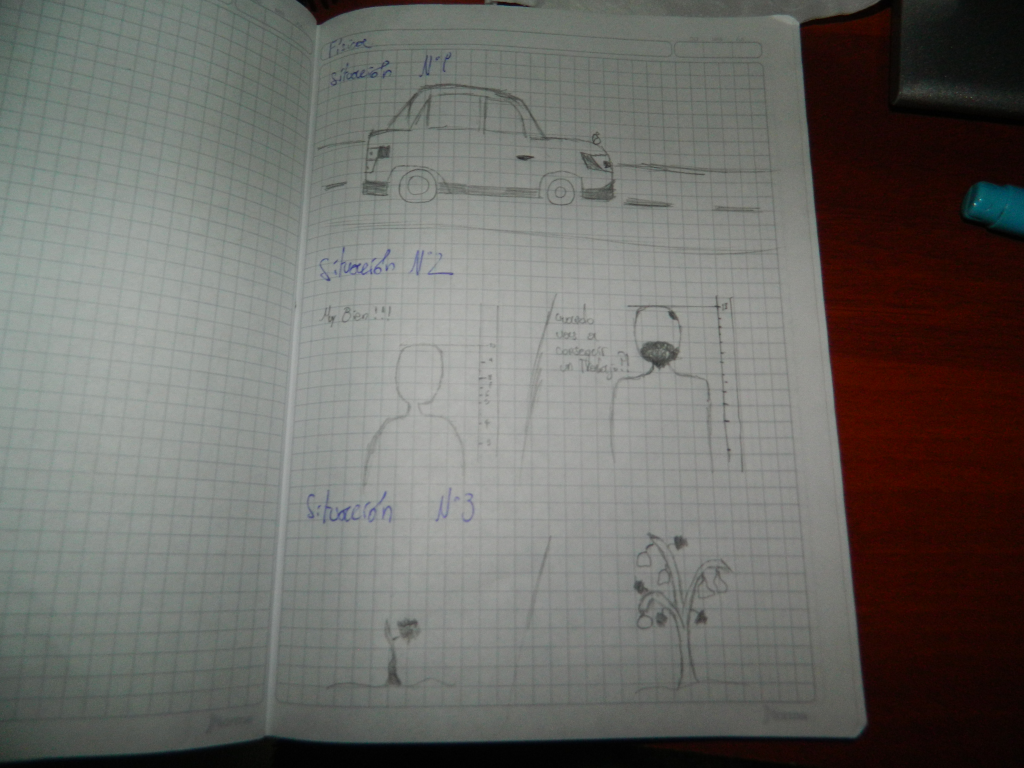 Física
Situación N°1
Situación N°2
Muy Bien!!!!
Cuando
vas a
conseguir
un Trabajo??
Situación N°3